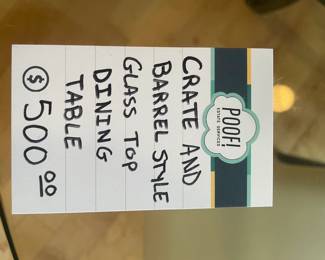 POOF!
ESTATE SERVICES
CRATE AND
BARREL STYLE
GLASS TOP
DINING
TABLE
$ 500.00